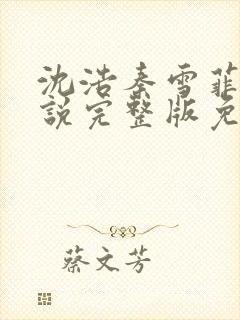 沈浩秦雪菲
說完整版免
蔡文芳